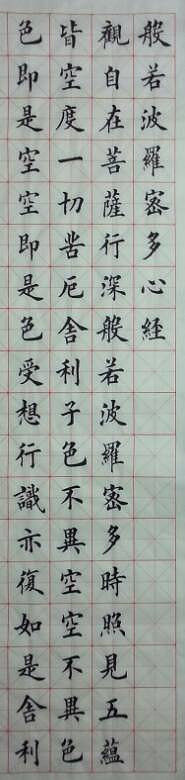 般若波羅密多心經
觀自在菩薩行深般若波羅密多時照見五蘊
皆空度一切苦厄舎利子色不異空空不異色
色即是空空即是色受想行識亦復如是舎利